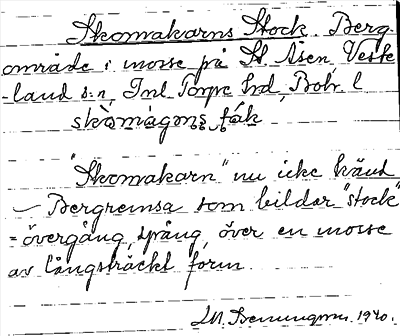 Skomakarns Stock. Berg-
område i mosse på St. Åsen Veske
-land s:n, Inl. Torpe hd, Boh. l
skòmàgɒns
"Skomakarn" nu icke känd
– Bergremsa som bildar "stock"
= övergång, spång, över en mosse
av långsträckt form.
1940.